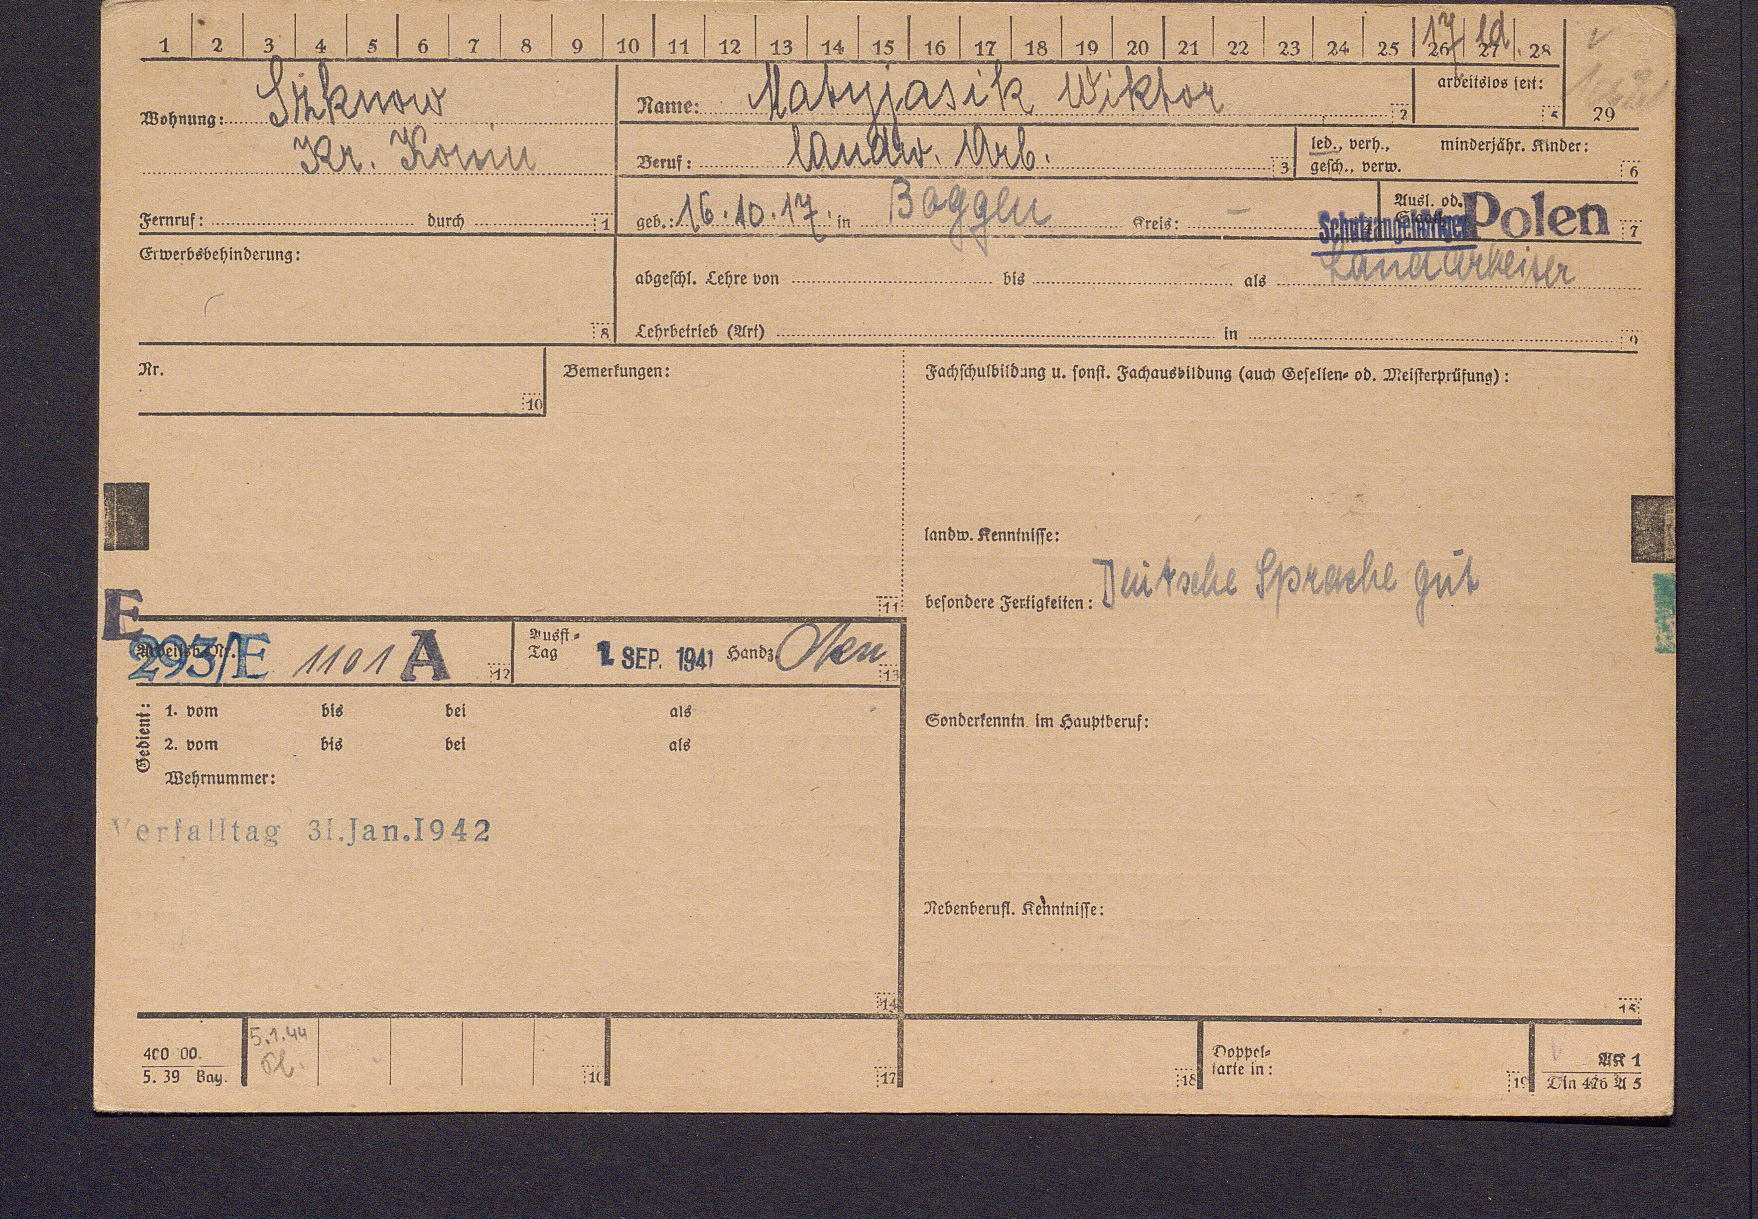 1 2 3 4 5 6 7 8 9 10 11 12 13 14 15 16 17 18 19 20 21 22 23 24 25 26 27 28
17 ld.
Wohnung: Slknow
Kr. Konin
Name: Matyjasik Wiktor 2
arbeitslos seit: 5
29
Beruf: landw. Arb. 3
led., verh., gesch., verw.
minderjähr. Kinder: 6
Fernruf: durch 1
geb.: 16.10.17. in Boggen Kreis: –
Ausl. od.
Schutzangehöriger Polen 7
Erwerbsbehinderung: 8
abgeschl. Lehre von bis als Landarbeiter
Lehrbetrieb (Art) in 9
Nr. 10
Bemerkungen: 11
Fachschulbildung u. sonst. Fachausbildung (auch Gesellen- od. Meisterprüfung):
landw. Kenntnisse:
besondere Fertigkeiten: Deutsche Sprache gut
E
Arbeitsb. Nr. 293/E 1101 A 12
Ausst.-Tag 1. SEP. 1941 Handz. 13
Gedient:
1. vom bis bei als
2. vom bis bei als
Wehrnummer:
Verfalltag 31.Jan.1942
14
Sonderkenntn. im Hauptberuf:
Nebenberufl. Kenntnisse:
15
400 00.
5. 39 Bay.
5.1.44
16
17
18
Doppel-
karte in: 19
AK 1
Din 476 A 5